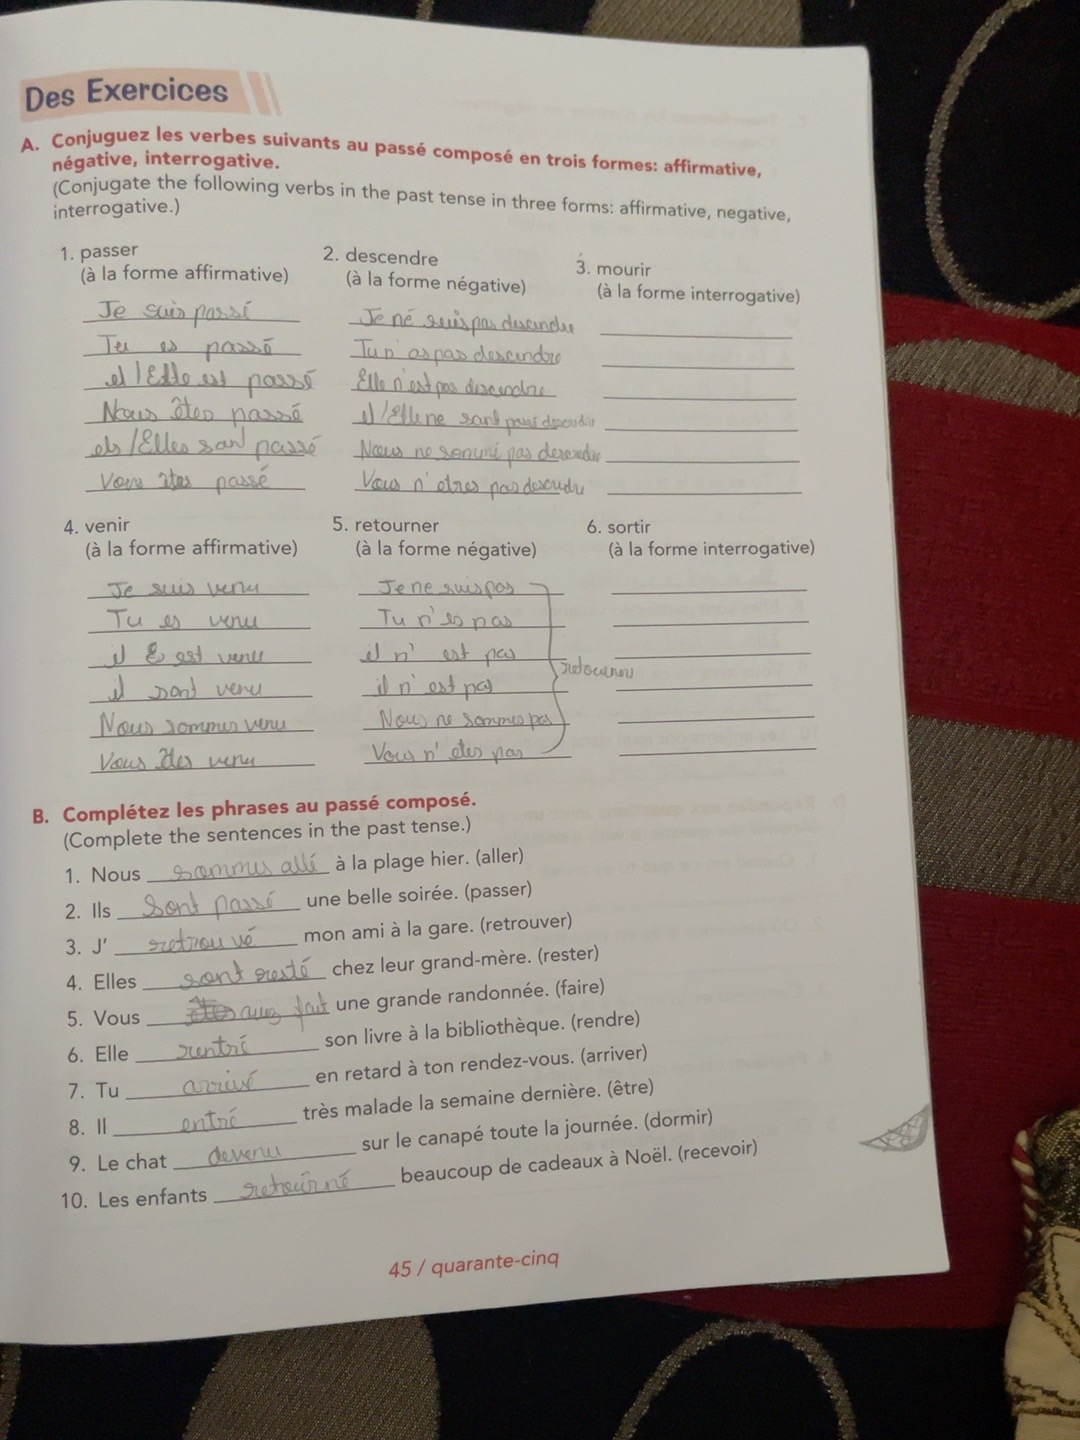 Des Exercices
A. Conjuguez les verbes suivants au passé composé en trois formes: affirmative,
négative, interrogative.
(Conjugate the following verbs in the past tense in three forms: affirmative, negative,
interrogative.)
1. passer
(à la forme affirmative)
Je suis passé
Tu es passé
il/Elle est passé
Nous êtes passé
els/Elles sont passé
Vous êtes passé
2. descendre
(à la forme négative)
Je né suis pas descendre
Tu n'as pas descendre
Elle n'est pas descendre
il/Elle ne sont pas
Nous ne pas
Vous n'etres pas descendu
3. mourir
(à la forme interrogative)
4. venir
(à la forme affirmative)
Je suis venu
Tu es venu
il E est venu
il sont venu
Nous sommes venu
Vous êtes venu
5. retourner
(à la forme négative)
Je ne suis pas
Tu n'es pas
il n'est pas
il n'est pas
Nous ne sommes pas
Vous n'etes pas
6. sortir
(à la forme interrogative)
B. Complétez les phrases au passé composé.
(Complete the sentences in the past tense.)
1. Nous sommes allé à la plage hier. (aller)
2. Ils sont passé une belle soirée. (passer)
3. J' retrouvé mon ami à la gare. (retrouver)
4. Elles sont resté chez leur grand-mère. (rester)
5. Vous fait une grande randonnée. (faire)
6. Elle rentré son livre à la bibliothèque. (rendre)
7. Tu arrivé en retard à ton rendez-vous. (arriver)
8. Il entré très malade la semaine dernière. (être)
9. Le chat devenu sur le canapé toute la journée. (dormir)
10. Les enfants retourné beaucoup de cadeaux à Noël. (recevoir)
45 / quarante-cinq